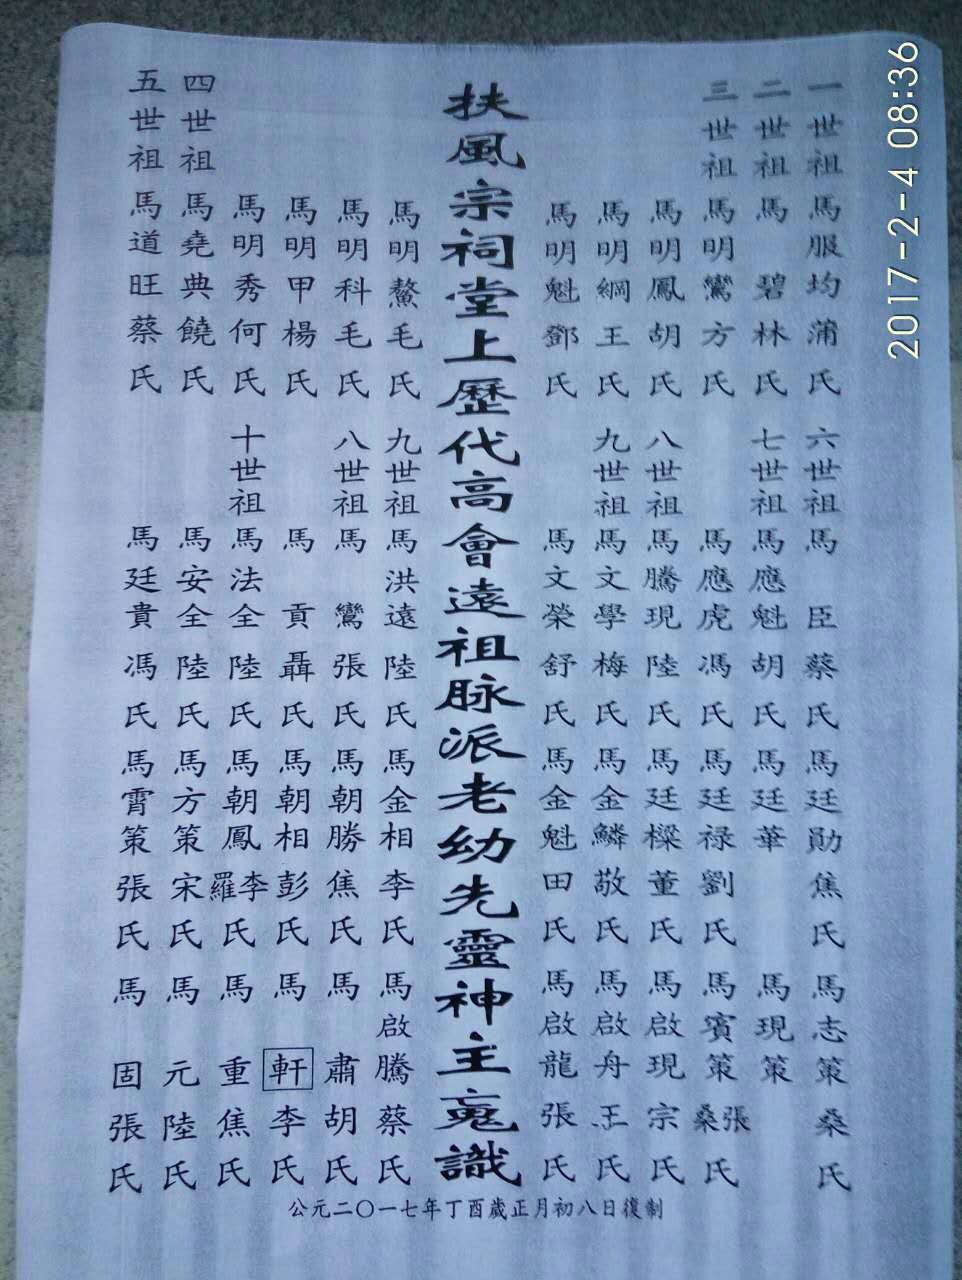 一世祖 馬服均蒲氏 六世祖 馬臣蔡氏 馬廷勛焦氏 馬志策桑氏
二世祖 馬碧林氏 七世祖 馬應魁胡氏 馬廷華 馬現策
三世祖 馬明鸞方氏 馬應虎馮氏 馬廷祿劉氏 馬賓策張桑氏
馬明鳳胡氏 八世祖 馬騰現陸氏 馬廷樑董氏 馬啟現宗氏
馬明綱王氏 九世祖 馬文學梅氏 馬金鱗敬氏 馬啟舟王氏
馬明魁鄧氏 馬文榮舒氏 馬金魁田氏 馬啟龍張氏
扶風宗祠堂上歷代高會遠祖脉派老幼先靈神主識
馬明鰲毛氏 九世祖 馬洪遠陸氏 馬金相李氏 馬啟騰蔡氏
馬明科毛氏 八世祖 馬鸞張氏 馬朝勝焦氏 馬肅胡氏
馬明甲楊氏 馬貢聶氏 馬朝相彭氏 馬軒李氏
馬明秀何氏 十世祖 馬法全陸氏 馬朝鳳李羅氏 馬重焦氏
四世祖 馬堯典饒氏 馬安全陸氏 馬方策宋氏 馬元陸氏
五世祖 馬道旺蔡氏 馬廷貴馮氏 馬霄策張氏 馬固張氏
公元二〇一七年丁酉歲正月初八日復制
2017-2-4 08:36